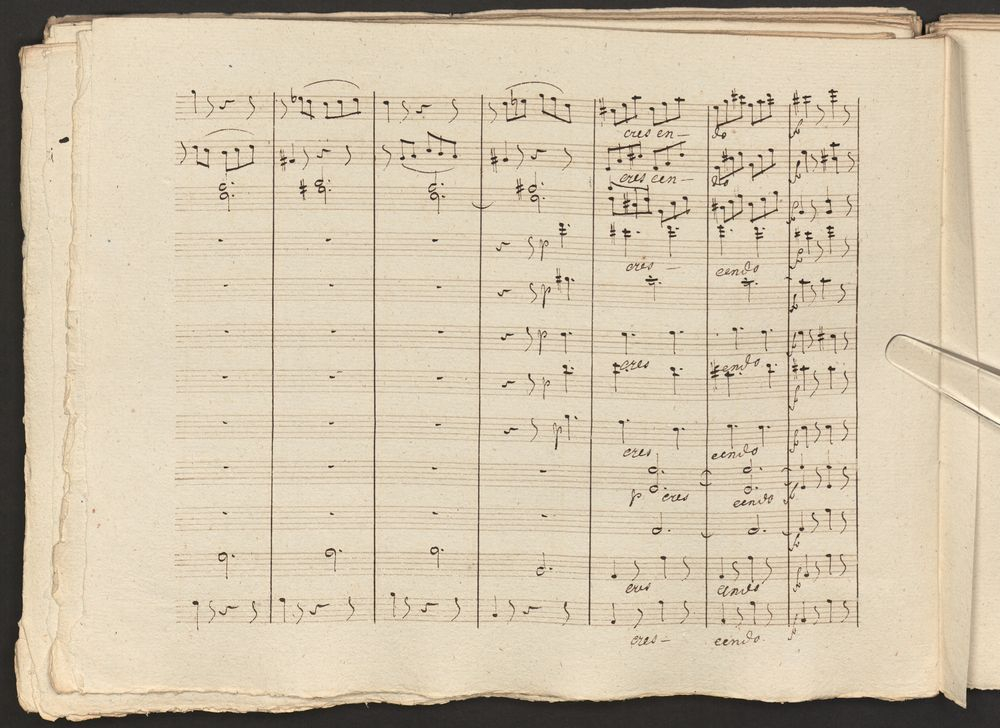 cres cen – do
cres cen – do
p
cres – cendo
p
p
cres cendo
p
p
cres cendo
p cres cendo
cres cendo
cres – cendo.